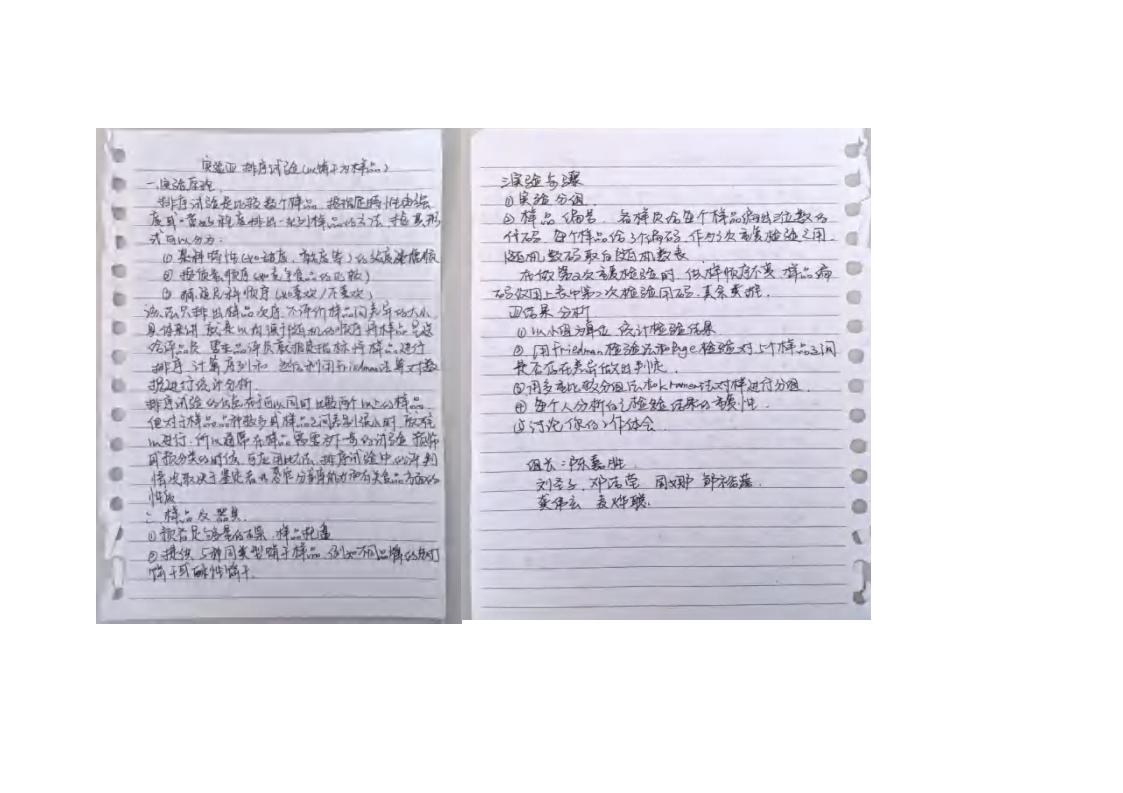 实验四 排序试验(以饼干为样品)
一.实验原理
排序试验是比较数个样品,按指定特性由强
度或喜好程度排出一系列样品的方法,按其形
式可以分为:
① 某种特性(如甜度、
② 按质量顺序(如竞争食品的比较)
③ 赫道尼科顺序(如喜欢/不喜欢)
该法只排出样品次序,不评价样品间差异的大小
具体来讲,就是以均衡随机的顺序将样品呈送
给评品员,要求品评员就指标将样品进行
排序,计算序列和,然后利用Friedman法等对数
据进行统计分析.
排序试验的优点在于可以同时比较两个以上的样品.
但对于样品品种较多或样品之间差别很小时,就难
以进行.所以通常在样品需要为下一步的试验预筛
或预分类的时候,可应用此方法.排序试验中的评判
情况取决于鉴定者 分辨能力和有关食品方面的
性质
二.样品及器具
①预备足够量的碟,样品托盘
②提供5种同类型饼干样品,例如不同品牌的苏打
饼干或酥性饼干.
三实验步骤
①实验分组
② 样品编号 给每个样品编出三位数的
代码,每个样品给3个编码,作为3次重复检验之用
随机数码取自随机数表
在做第2次重复检验时,供样顺序不变,样品编
码改用上表中第二次检验用码,其余类推.
四结果分析
① 以小组为单位,统计检验结果
② 用Friedman检验法和Page检验对5个样品之间
是否存在差异做出判定
③用多重比较分组法和Kramer法对样进行分组
④ 每个人分析自己检验结果的重复性.
⑤讨论你的工作体会
组长:陈嘉胜